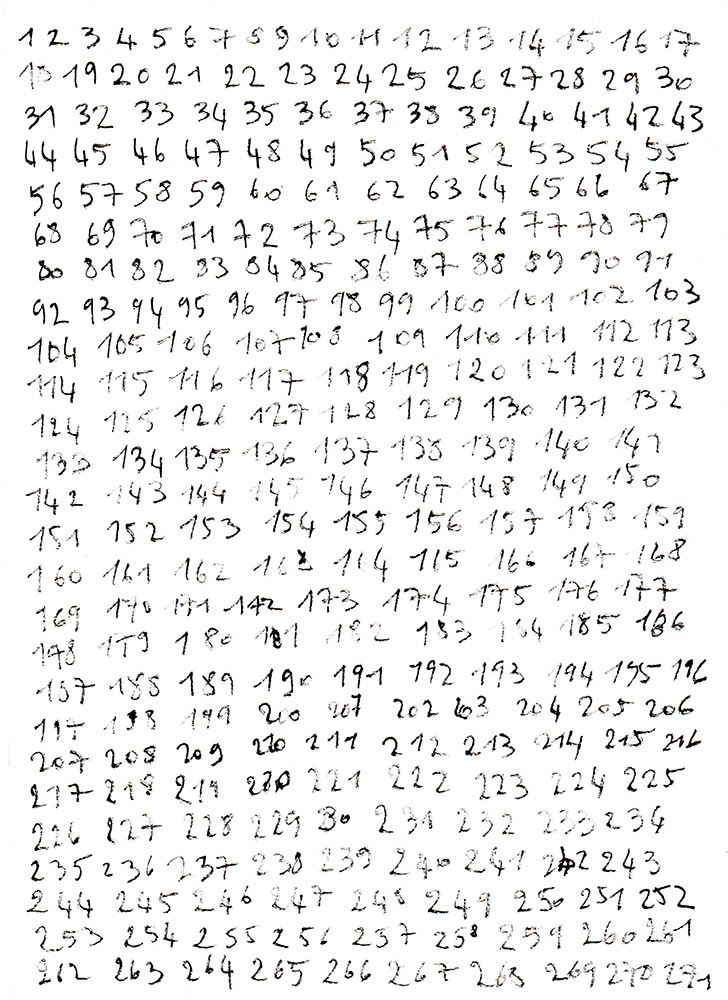 1 2 3 4 5 6 7 8 9 10 11 12 13 14 15 16 17
18 19 20 21 22 23 24 25 26 27 28 29 30
31 32 33 34 35 36 37 38 39 40 41 42 43
44 45 46 47 48 49 50 51 52 53 54 55
56 57 58 59 60 61 62 63 64 65 66 67
68 69 70 71 72 73 74 75 76 77 78 79
80 81 82 83 84 85 86 87 88 89 90 91
92 93 94 95 96 97 98 99 100 101 102 103
104 105 106 107 108 109 110 111 112 113
114 115 116 117 118 119 120 121 122 123
124 125 126 127 128 129 130 131 132
133 134 135 136 137 138 139 140 141
142 143 144 145 146 147 148 149 150
151 152 153 154 155 156 157 158 159
160 161 162 163 164 165 166 167 168
169 170 171 172 173 174 175 176 177
178 179 180 181 182 183 184 185 186
187 188 189 190 191 192 193 194 195 196
197 198 199 200 201 202 203 204 205 206
207 208 209 210 211 212 213 214 215 216
217 218 219 220 221 222 223 224 225
226 227 228 229 30 231 232 233 234
235 236 237 238 239 240 241 242 243
244 245 246 247 248 249 250 251 252
253 254 255 256 257 258 259 260 261
262 263 264 265 266 267 268 269 270 271